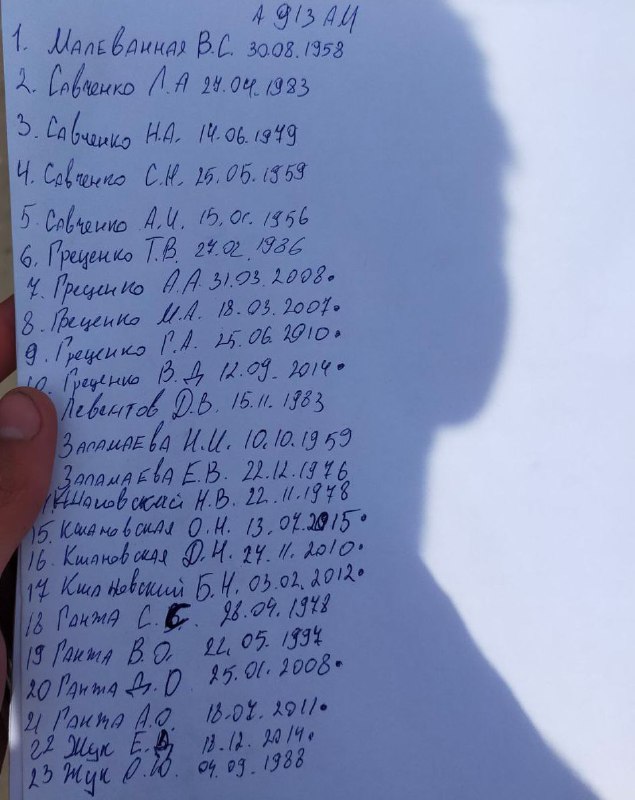 А 913 АМ
1. Малеванная В.С. 30.08.1958
2. Савченко Л.А 27.04.1983
3. Савченко Н.А. 14.06.1979
4. Савченко С.Н. 25.05.1959
5. Савченко А.И. 15.01.1956
6. Греценко Т.В. 27.02.1986
7. Греценко А.А. 31.03.2008.
8. Греценко М.А. 18.03.2007.
9. Греценко Г.А. 25.06.2010.
10. Греценко В.Д 12.09.2014.
Левентов Д.В. 15.11.1983
Заламаева Н.И. 10.10.1959
Заламаева Е.В. 22.12.1976
Кшановский Н.В. 22.11.1978
15. Кшановская О.Н. 13.07.2015.
16. Кшановская Д.Н. 27.11.2010.
17 Кшановский Б.Н. 03.02.2012.
18 Ганжа С. 28.04.1978
19 Ганжа В.О. 22.05.1997
20 Ганжа Д.О 25.01.2008.
21 Ганжа А.О. 18.07.2011.
22 Жук Е. 18.12.2014.
23 Жук О.Ю. 04.09.1988